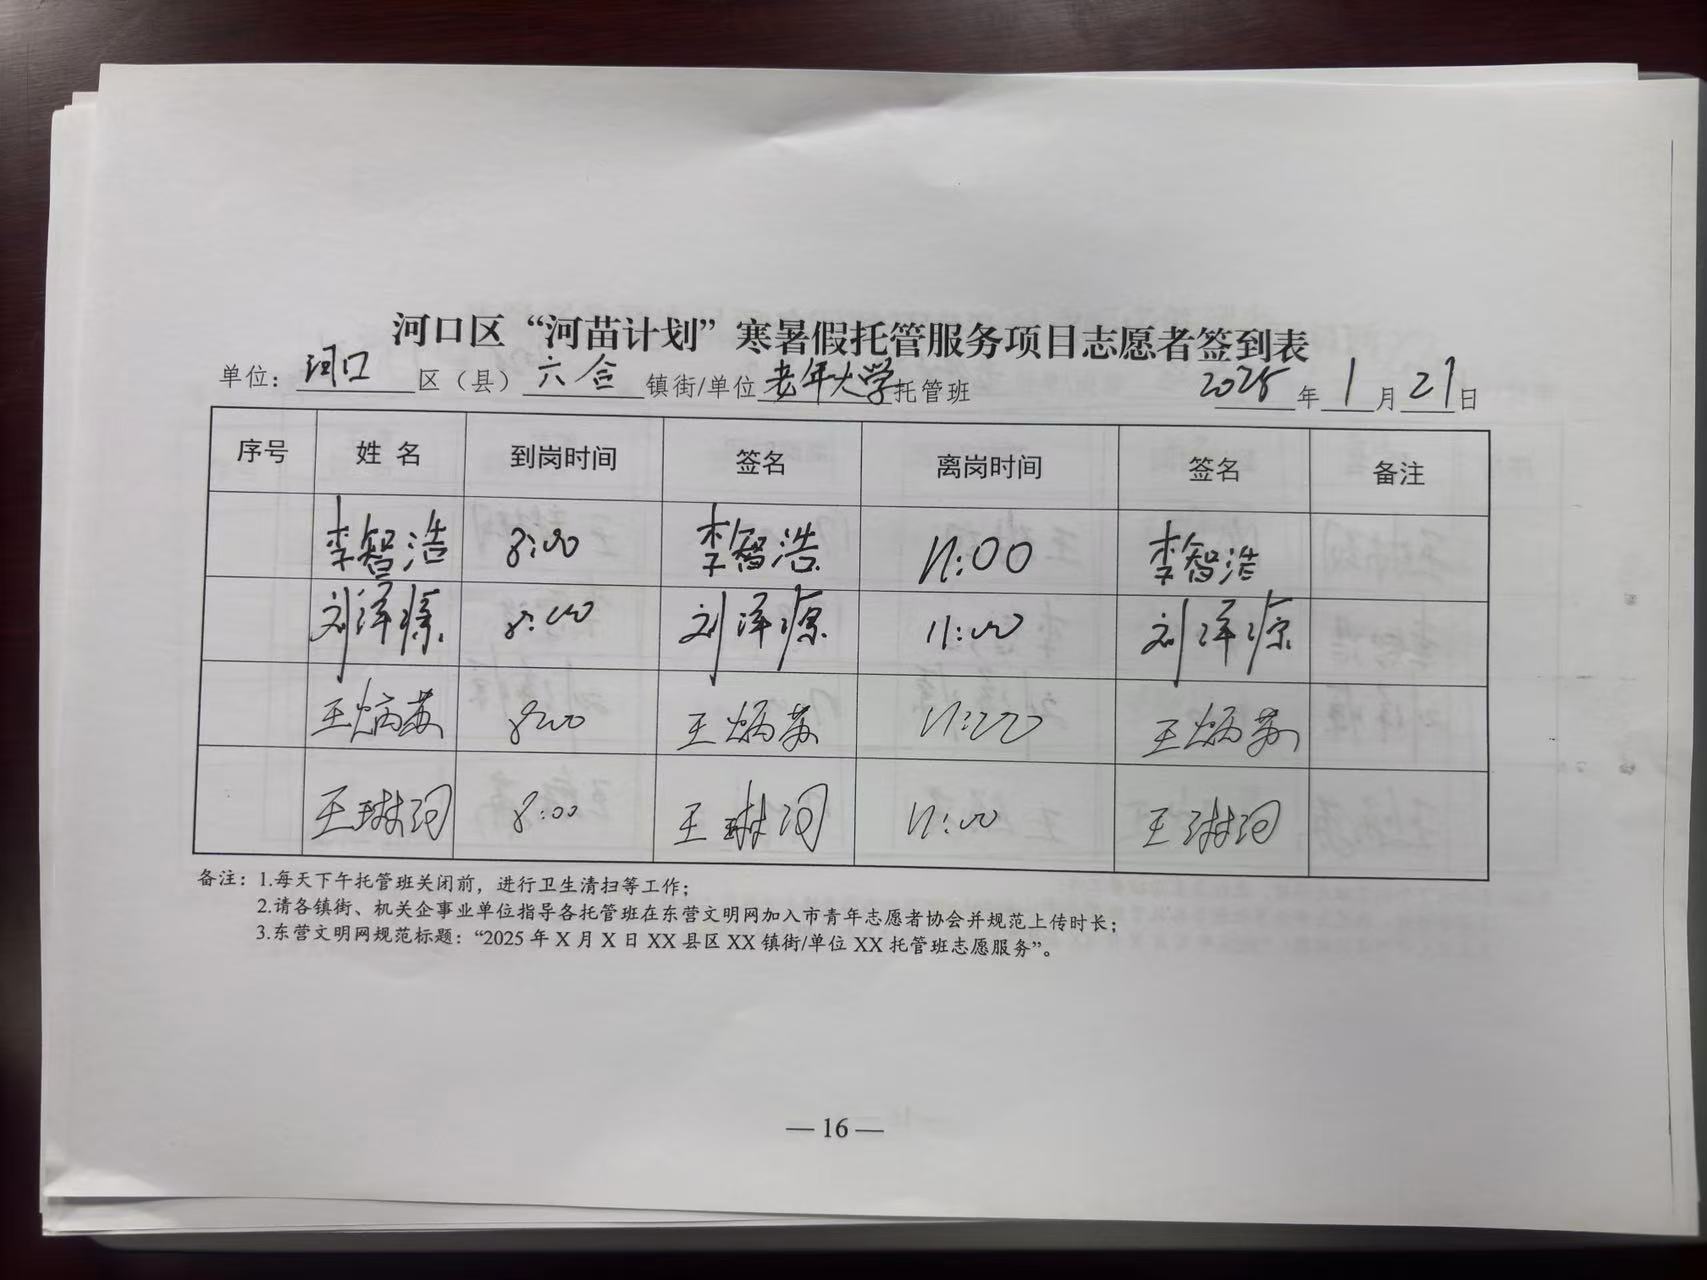 河口区“河苗计划”寒暑假托管服务项目志愿者签到表
单位：河口区（县）六合镇街/单位老年大学托管班 2025年1月21日
序号 姓名 到岗时间 签名 离岗时间 签名 备注
李智浩 8:00 李智浩 11:00 李智浩
刘泽源 8:00 刘泽源 11:00 刘泽源
王炳苏 8:00 王炳苏 11:00 王炳苏
王琳润 8:00 王琳润 11:00 王琳润
备注：1.每天下午托管班关闭前，进行卫生清扫等工作；
2.请各镇街、机关企事业单位指导各托管班在东营文明网加入市青年志愿者协会并规范上传时长；
3.东营文明网规范标题：“2025 年 X 月 X 日 XX 县区 XX 镇街/单位 XX 托管班志愿服务”。
—16—